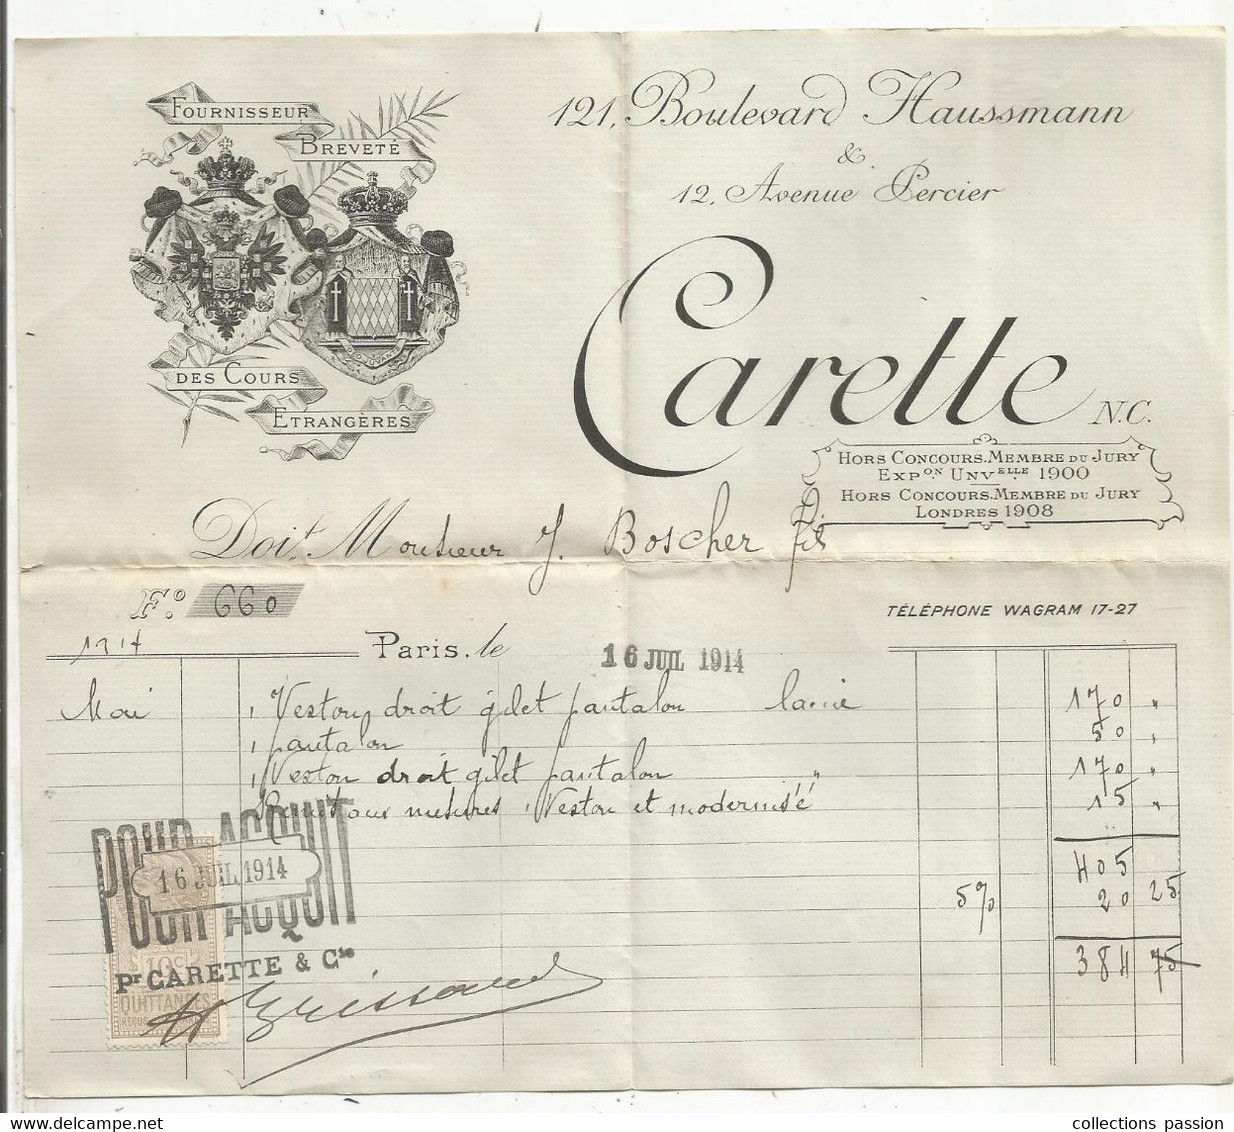 FOURNISSEUR
BREVETÉ
DES COURS
ETRANGÈRES
121, Boulevard Haussmann
&
12, Avenue Percier
Carette N.C.
HORS CONCOURS. MEMBRE DU JURY
EXPON UNVELLE 1900
HORS CONCOURS. MEMBRE DU JURY
LONDRES 1908
Doit Monsieur J. Boscher fils
Fo. 660
TÉLÉPHONE WAGRAM 17-27
1914 Paris, le 16 JUIL 1914
Mai 1 Veston droit gilet pantalon 170 "
1 pantalon 50 "
1 Veston droit gilet pantalon " 170 "
mesures 1 Veston et modernisé 15 "
405
5% 20 25
384 75
POUR ACQUIT
16 JUIL 1914
POUR ACQUIT
Pr CARETTE & Cie
10c
QUITTANCES
collections passion